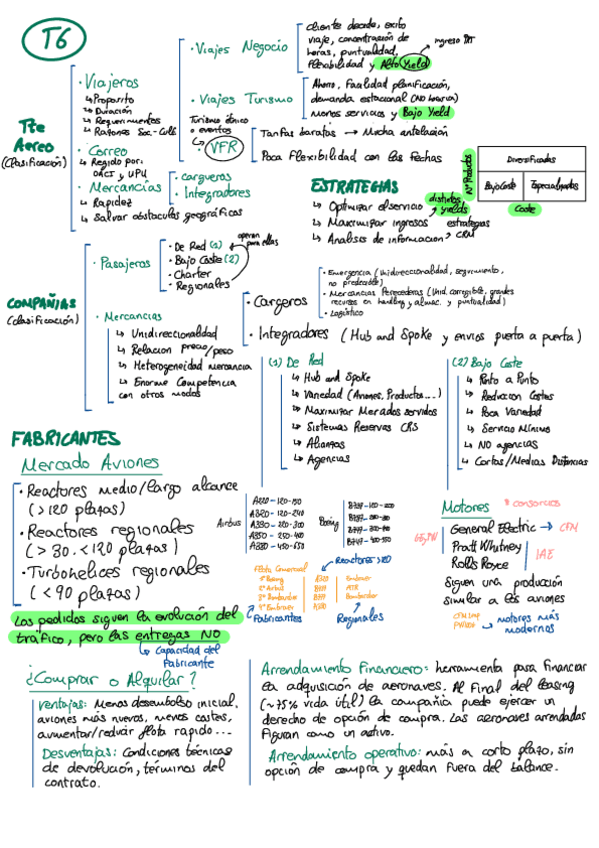 T6
Tte
Aereo
(Clasificación)
· Viajeros
↳ Proposito
↳ Duración
↳ Requerimientos
↳ Razones Soc.-Cult
· Correo
↳ Regido por:
OACI y UPU
· Mercancías
↳ Rapidez
↳ Salvar obstaculos geográficos
· Viajes Negocio
cliente decide, exito
viaje, concentración de
horas, puntualidad,
flexibilidad y Alto Yield
ingreso
· Viajes Turismo
Ahorro, Facilidad planificación,
demanda estacional
Menos servicios y Bajo Yield
Turismo étnico
o eventos
↳ VFR
Tarifas baratas → Mucha antelación
Poca Flexibilidad con las fechas
· cargueros
· Integradores
ESTRATEGIAS
↳ Optimizar el servicio
distintos
yields
↳ Maximizar ingresos estrategias
↳ Analisis de informacion → CRM
Nº Productos
Diversificadas
Bajo Coste
Especializadas
Coste
COMPAÑIAS
(Clasificación)
· Pasajeros
· De Red (1)
· Bajo Coste (2)
· Charter
· Regionales
operan
para ellas
· Mercancias
↳ Unidireccionalidad
↳ Relacion precio/peso
↳ Heterogeneidad mercancia
↳ Enorme Competencia
con otros modos
· Cargeros
· Emergencia (Unidireccionalidad, seguimiento,
no predecible)
· Mercancias Perecederas (Unid. corregible, grandes
recursos en handling y almac. y puntualidad)
· Logístico
· Integradores (Hub and Spoke y envios puerta a puerta)
(1) De Red
↳ Hub and Spoke
↳ Variedad (Aviones, Productos...)
↳ Maximizar Mercados servidos
↳ Sistemas Reservas CRS
↳ Alianzas
↳ Agencias
(2) Bajo Coste
↳ Punto a Punto
↳ Reduccion Costes
↳ Poca Variedad
↳ Servicio Mínimo
↳ NO agencias
↳ Cortas/Medias Distancias
FABRICANTES
Mercado Aviones
· Reactores medio/largo alcance
(> 120 plazas)
· Reactores regionales
(> 30 - < 120 plazas)
· Turbohelices regionales
(< 90 plazas)
Airbus
A220 - 120-150
A320 - 120-240
A330 - 220-300
A350 - 250-400
A380 - 450-650
Boeing
Motores
3 consorcios
General Electric → CFM
Pratt Whitney
Rolls Royce
IAE
Siguen una producción
similar a los aviones
↳ motores más
modernos
Flota Comercial
1º Boeing
2º Airbus
3º Bombardier
4º Embraer
Embraer
ATR
Bombardier
Fabricantes
Regionales
Los pedidos siguen la evolución del
tráfico, pero las entregas NO
↳ Capacidad del
Fabricante
¿Comprar o Alquilar?
Ventajas: Menos desembolso inicial,
aviones más nuevos, menos costes,
aumentar/reducir flota rapido...
Desventajas: Condiciones técnicas
de devolución, términos del
contrato.
Arrendamiento Financiero: herramienta para financiar
la adquisición de aeronaves. Al Final del leasing
(~75% vida útil) la compañia puede ejercer un
derecho de opción de compra. Las aeronaves arrendadas
Figuran como un activo.
Arrendamiento operativo: más a corto plazo, sin
opción de compra y quedan Fuera del balance.